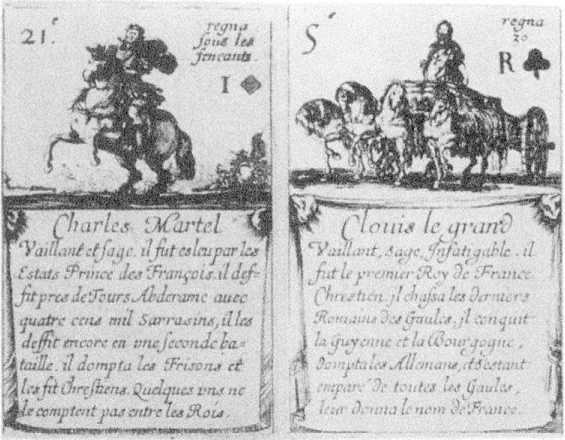 21.e
regna
sous les
feneants.
I
Charles Martel
Vaillant et sage. il fut esleu par les
Estats Prince des François. il def-
fit pres de Tours Abderame avec
quatre cens mil Sarrasins, il les
deffit encore en vne seconde ba-
taille. il dompta les Frisons et
les fit Chrestiens. Quelques vns ne
le comptent pas entre les Rois.
5e
regna
30
R
Clouis le grand
Vaillant, sage, Infatigable. il
fut le premier Roy de France
Chrestien. il chassa les derniers
Romains des Gaules, il conquit
la Guyenne et la Bourgogne,
dompta les Allemans, et s'estant
emparé de toutes les Gaules,
leur donna le nom de France.